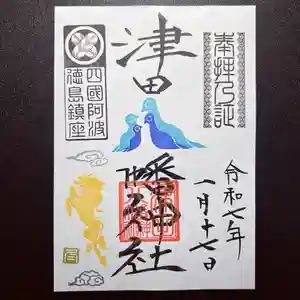 奉拝乃証
津田
四國阿波
徳島鎮座
神社
令和七年
一月十七日